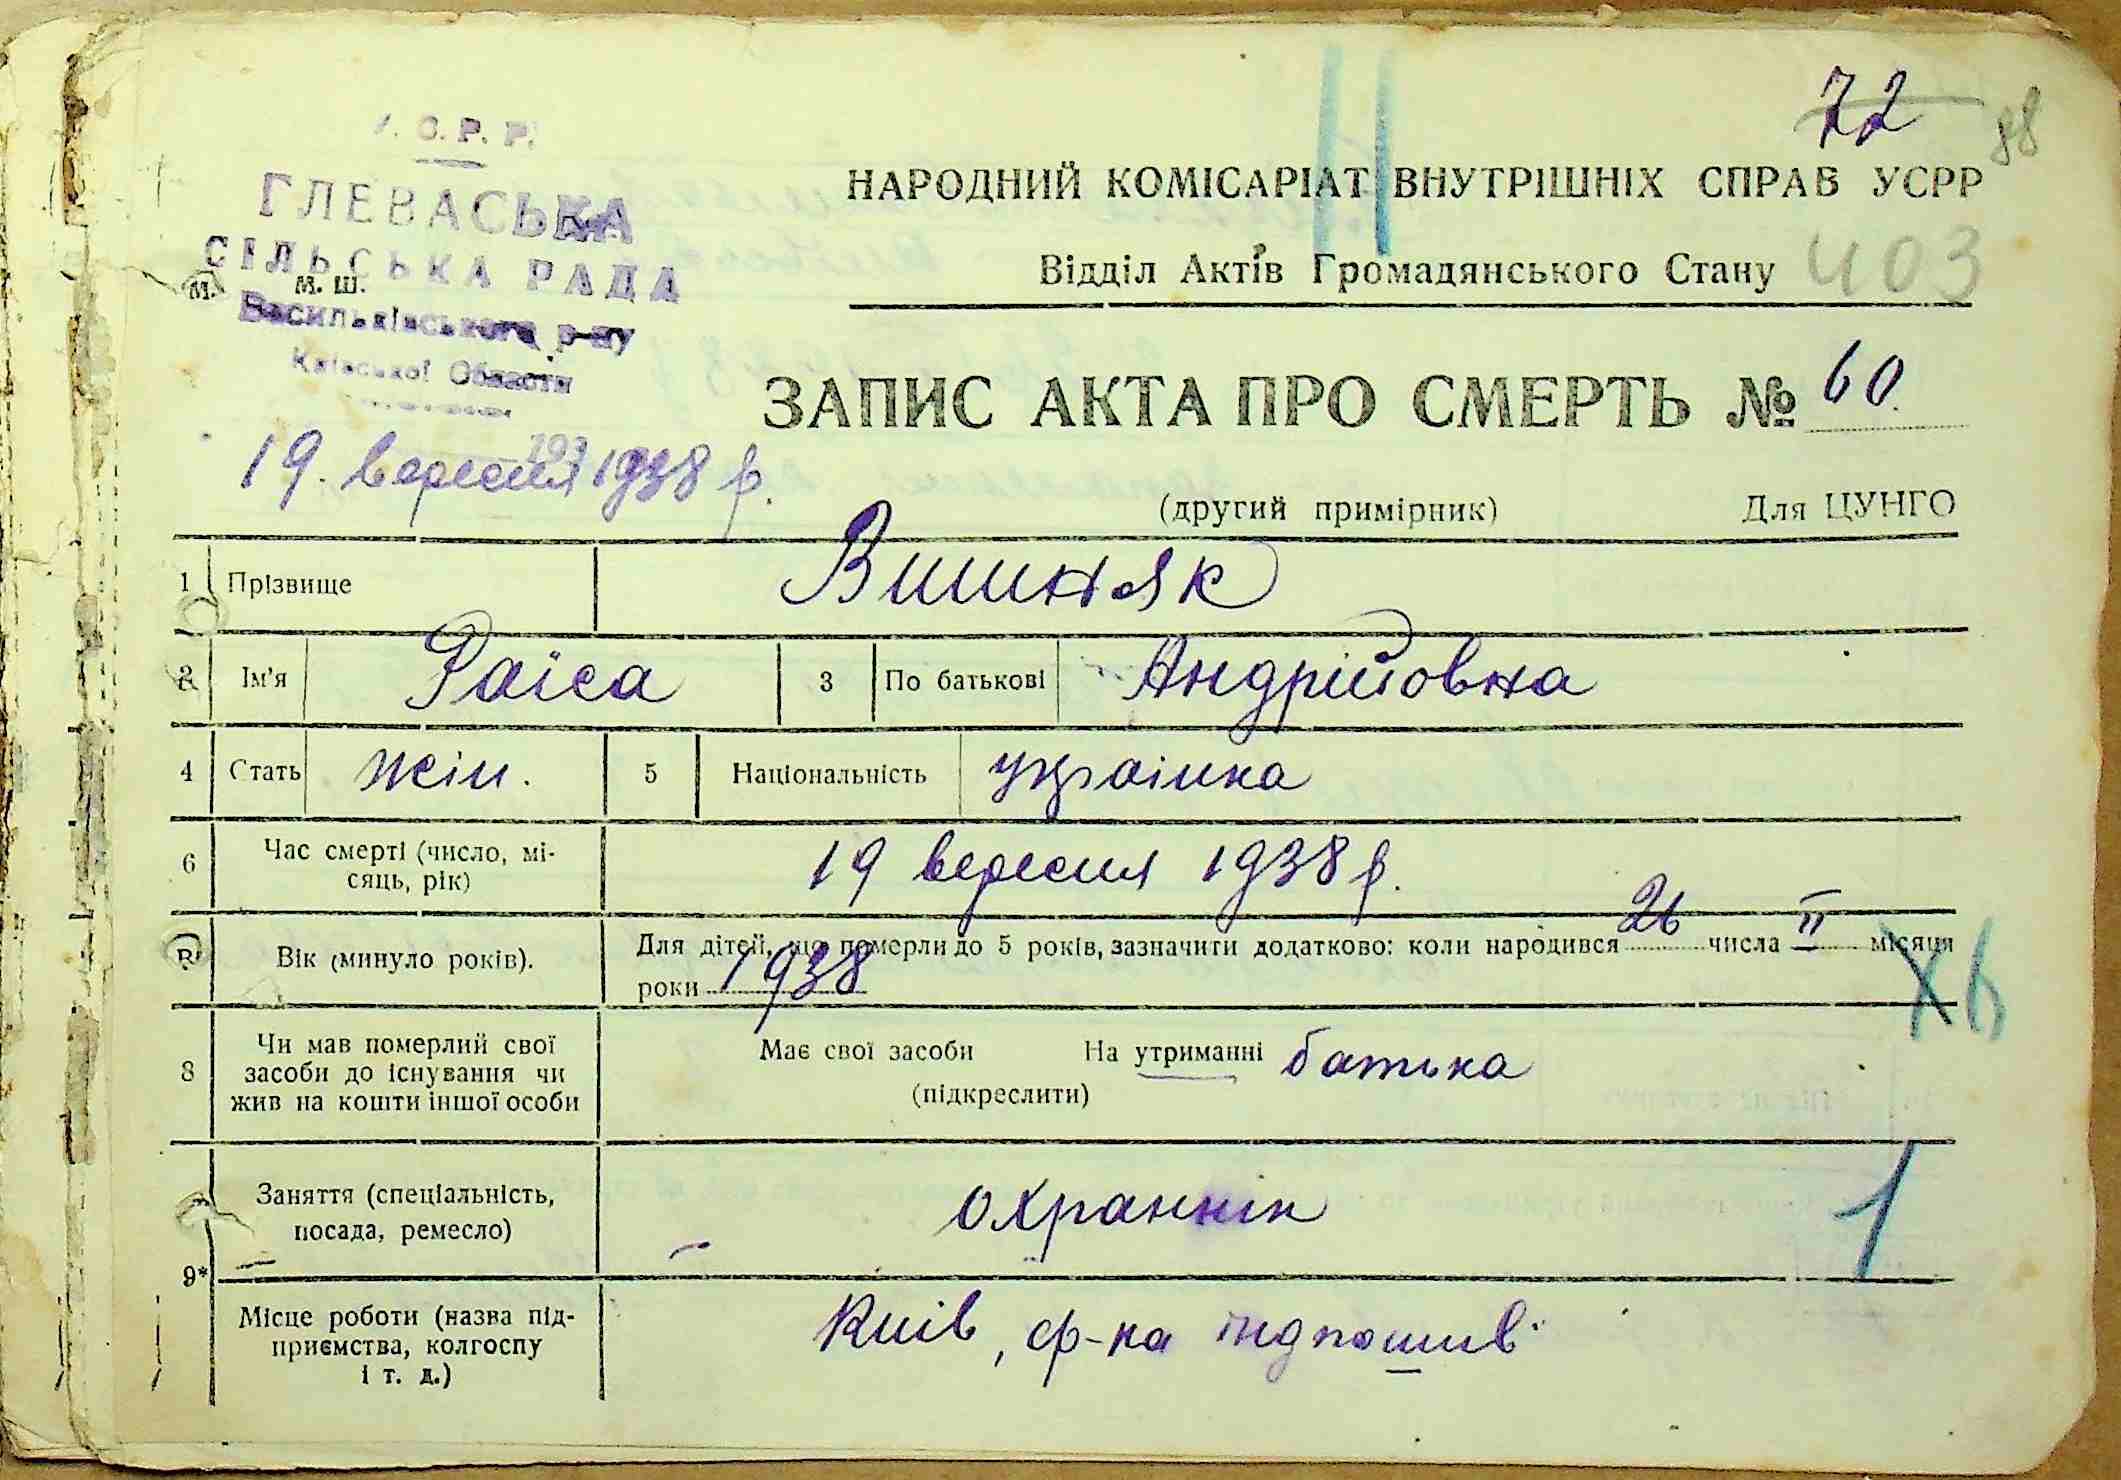 С. Р. Р.
ГЛЕВАСЬКА
СІЛЬСЬКА РАДА
М. М. Ш.
Васильківського р-ну
Київської Области
72
88
НАРОДНИЙ КОМІСАРІАТ ВНУТРІШНІХ СПРАВ УСРР
Відділ Актів Громадянського Стану 403
ЗАПИС АКТА ПРО СМЕРТЬ № 60
193
19. вересня 1938 р.
(другий примірник) Для ЦУНГО
1 Прізвище Вишняк
2 Ім'я Раїса 3 По батькові Андрійовна
4 Стать жін. 5 Національність українка
6 Час смерті (число, мі-
сяць, рік) 19 вересня 1938 р.
Вік (минуло років). Для дітей, що померли до 5 років, зазначити додатково: коли народився 26 числа II місяця
роки 1938
8 Чи мав померлий свої
засоби до існування чи
жив на кошти іншої особи
Має свої засоби На утриманні батька
(підкреслити)
Заняття (спеціальність,
посада, ремесло) охраннік
1
9*
Місце роботи (назва під-
приємства, колгоспу
і т. д.) Київ, ф-ка індпошив